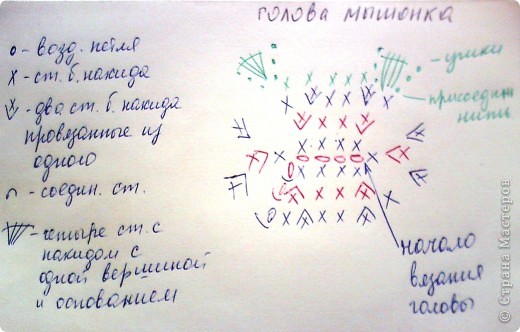 голова мышонка
о - возд. петля
х - ст. б. накида
- два ст. б. накида
провязанные из
одного
- соедин. ст.
- четыре ст. с
накидом с
одной вершиной
и основанием
- ушки
присоедин.
нить.
начало
вязания
головы
© Страна Мастеров